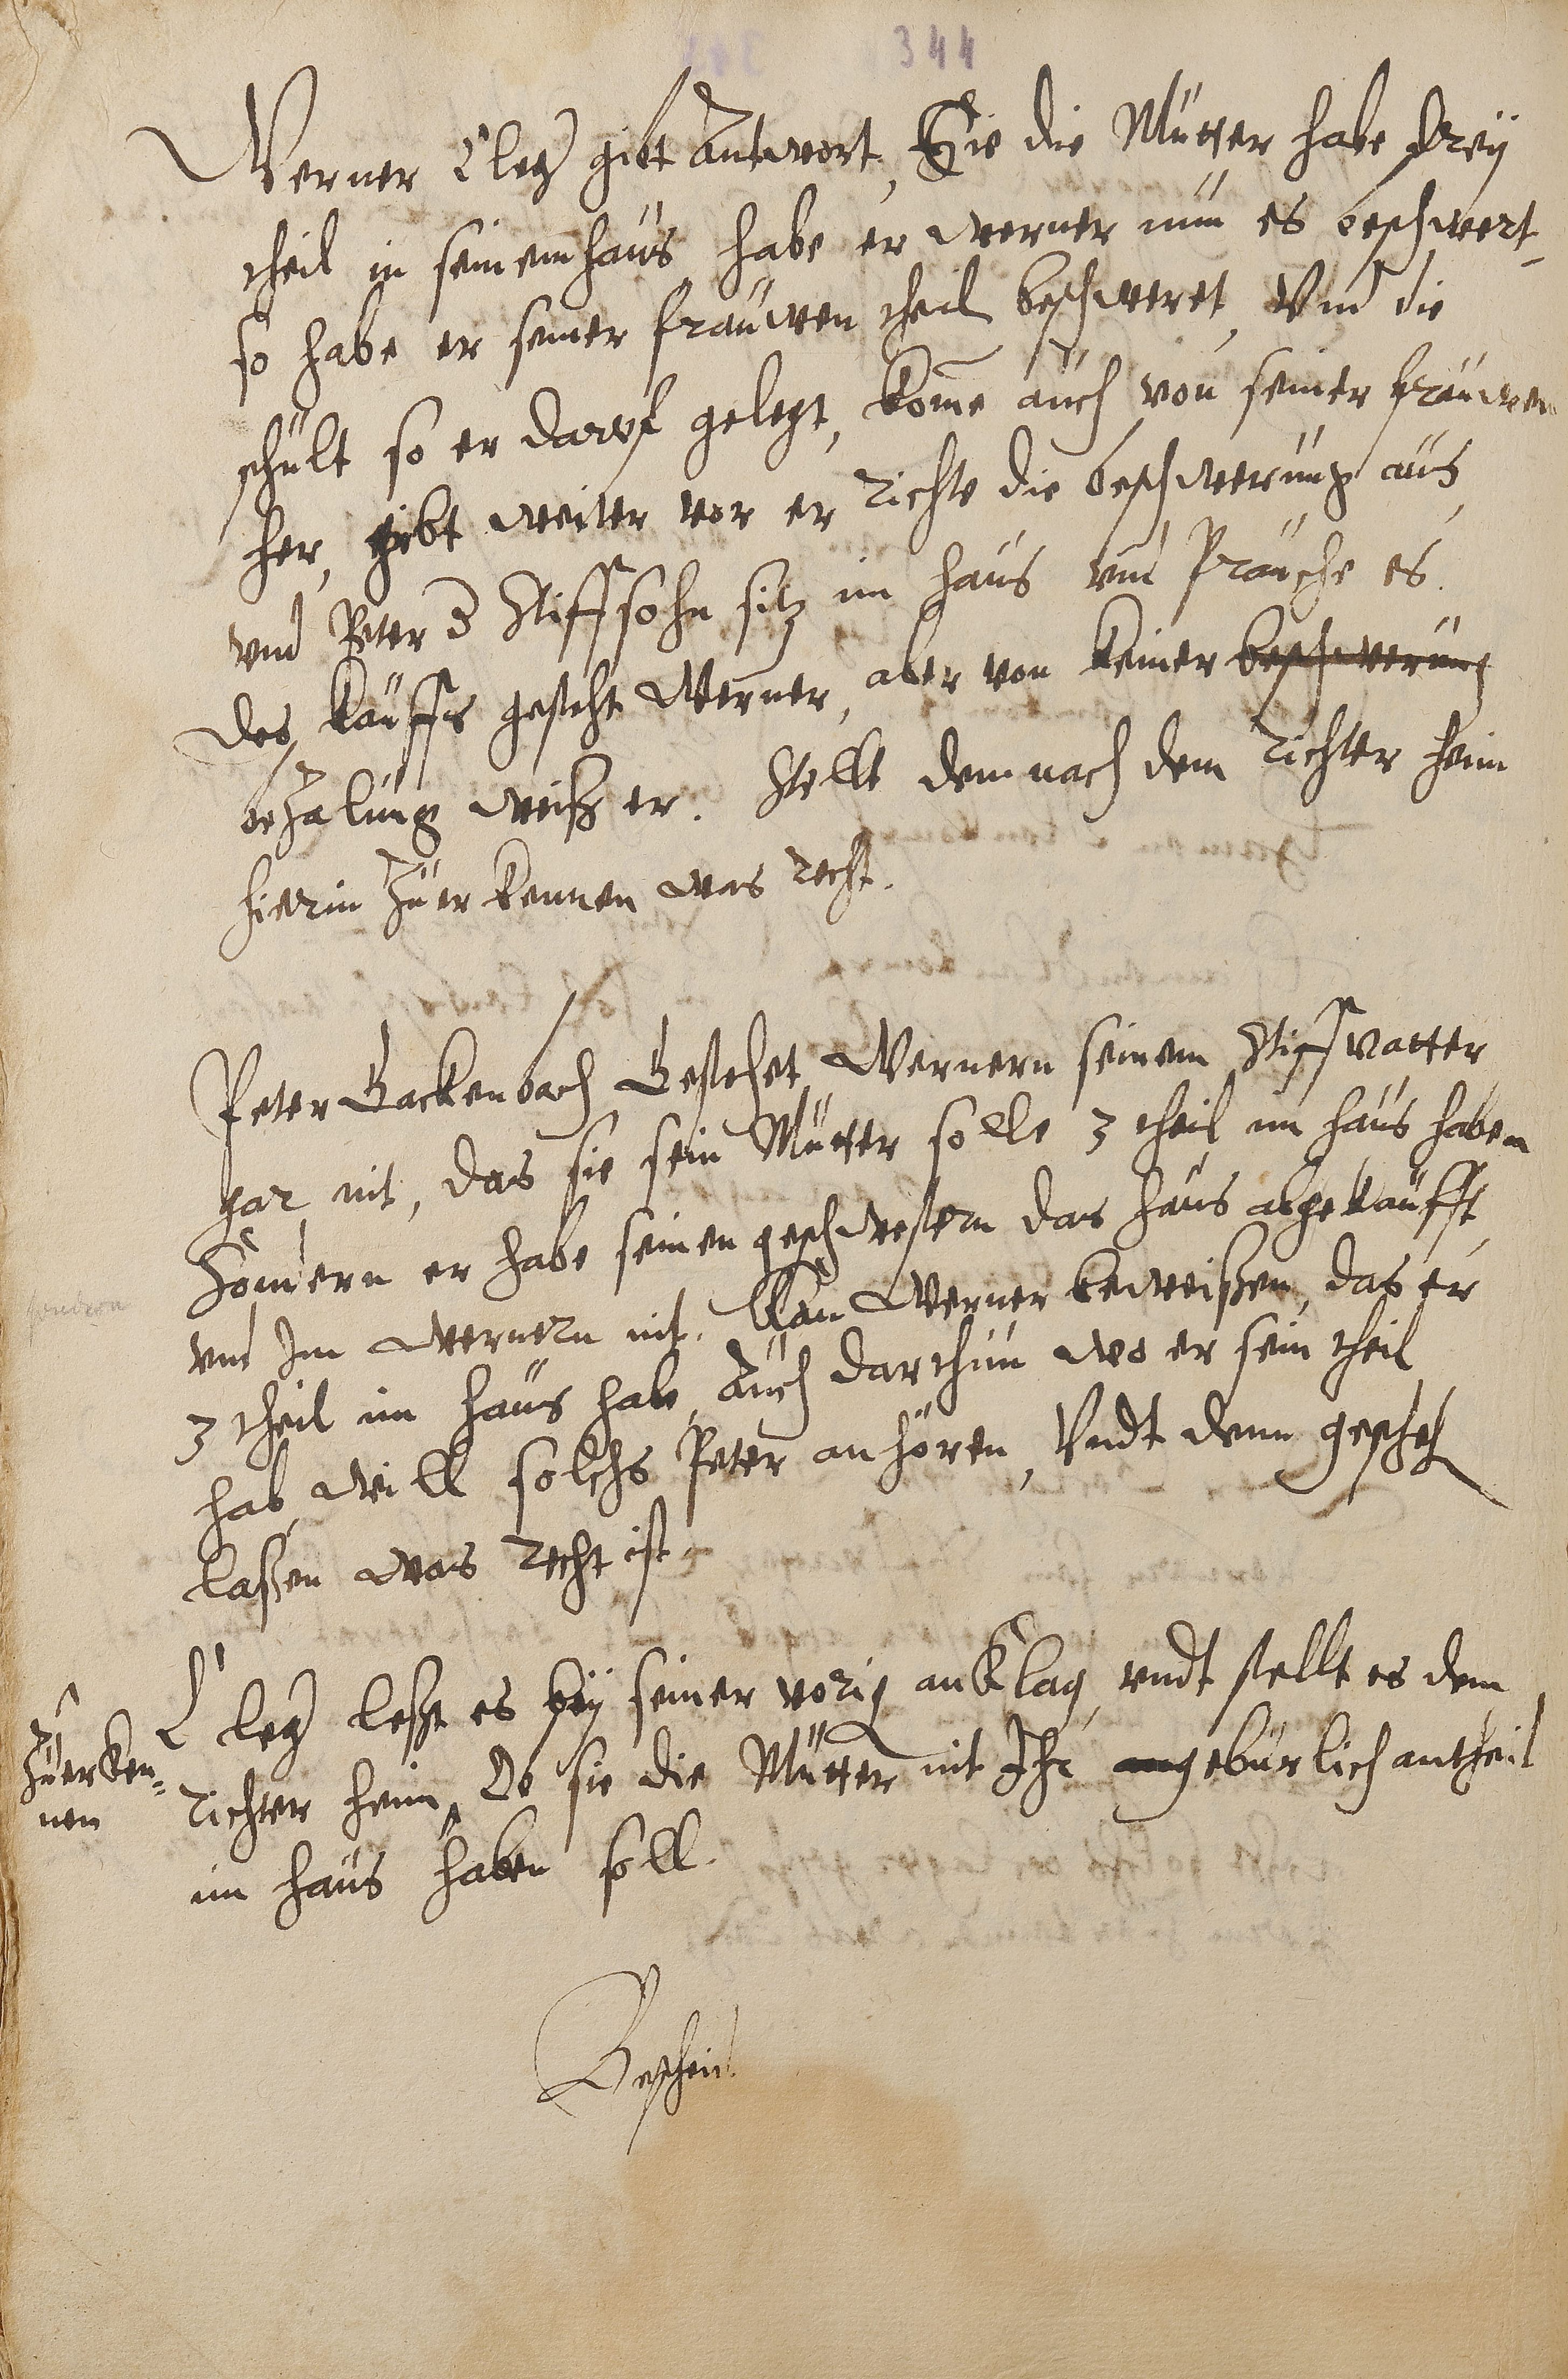 344
Werner Cleg gibt Antwort, Sie die Mutter habe drey
theil in seinem haus, habe er werner nun es beschwert,
so habe er seiner frauwen theil beschweret, Vnd die
schult so er darvf gelegt, kome auch von seiner frauwen
her, gibt weiter vor er richte die beschwerung aus,
vnd Peter d Stiffsohn sitz im haus vnd prauche es.
des kauffs gesteht Werner, aber von keiner beschwerung
bezalung weiß er. Stellt demnach dem richter heim
hierin zu erkennen was recht.
Peter Hackenbach Gestehet Wernern seinem Stiffvatter
gar nit, das sie sein Mutter solle 3 theil im haus haben
Sondern er habe seinen geschwestern das haus abgekaufft,
vnd Im wernern nit. Kan Werner beweißen, das er
3 theil im haus habe, Auch darthun wo er sein theil
hab, will solchs Peter anhören, Vndt denn gescheh
laßen was recht ist.
Cleg leßt es bey seiner vorig anklag, vndt stellt es dem
zu erken-
nen
richter heim, Ob sie die Mutter nit Ihr gebürlich antheil
im haus haben soll.
Bescheid.